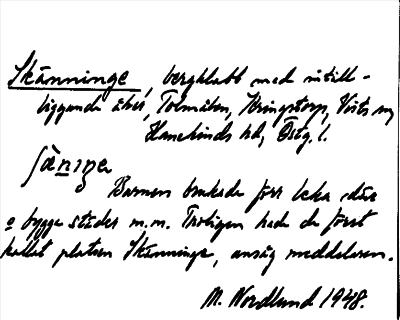 Skänninge, bergklabb med intill-
liggande åker, Tolmåben, Kringstorp, Vists sn,
Hanekinds hd, Östg. l.
ʃæniŋe
Barnen brukade förr leka där
o bygga städer m.m. Troligen hade de först
kallat platsen Skänninge, ansåg meddelaren.
M. Nordlund 1948.